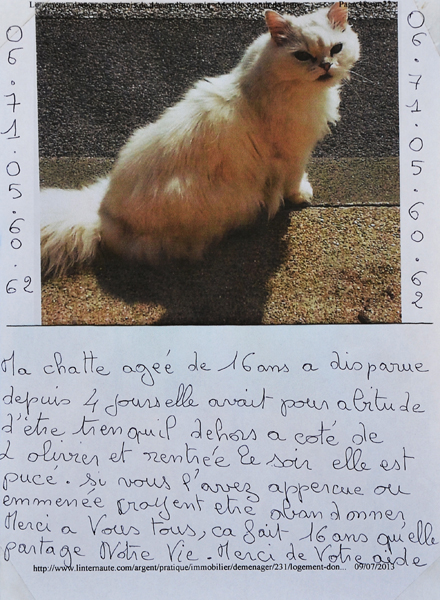 06.71.05.60.62
06.71.05.60.62
Ma chatte ageé de 16 ans a disparue
depuis 4 jours elle avait pour abitude
d'être trenquil dehors a coté de
2 oliviers et rentrée le soir elle est
pucé. Si vous l'avez appercue ou
emmenée croyent etre abandonner
Merci a Vous tous, ca fait 16 ans qu'elle
partage Notre Vie. Merci de Votre aide
http://www.linternaute.com/argent/pratique/immobilier/demenager/231/logement-don... 09/07/2013